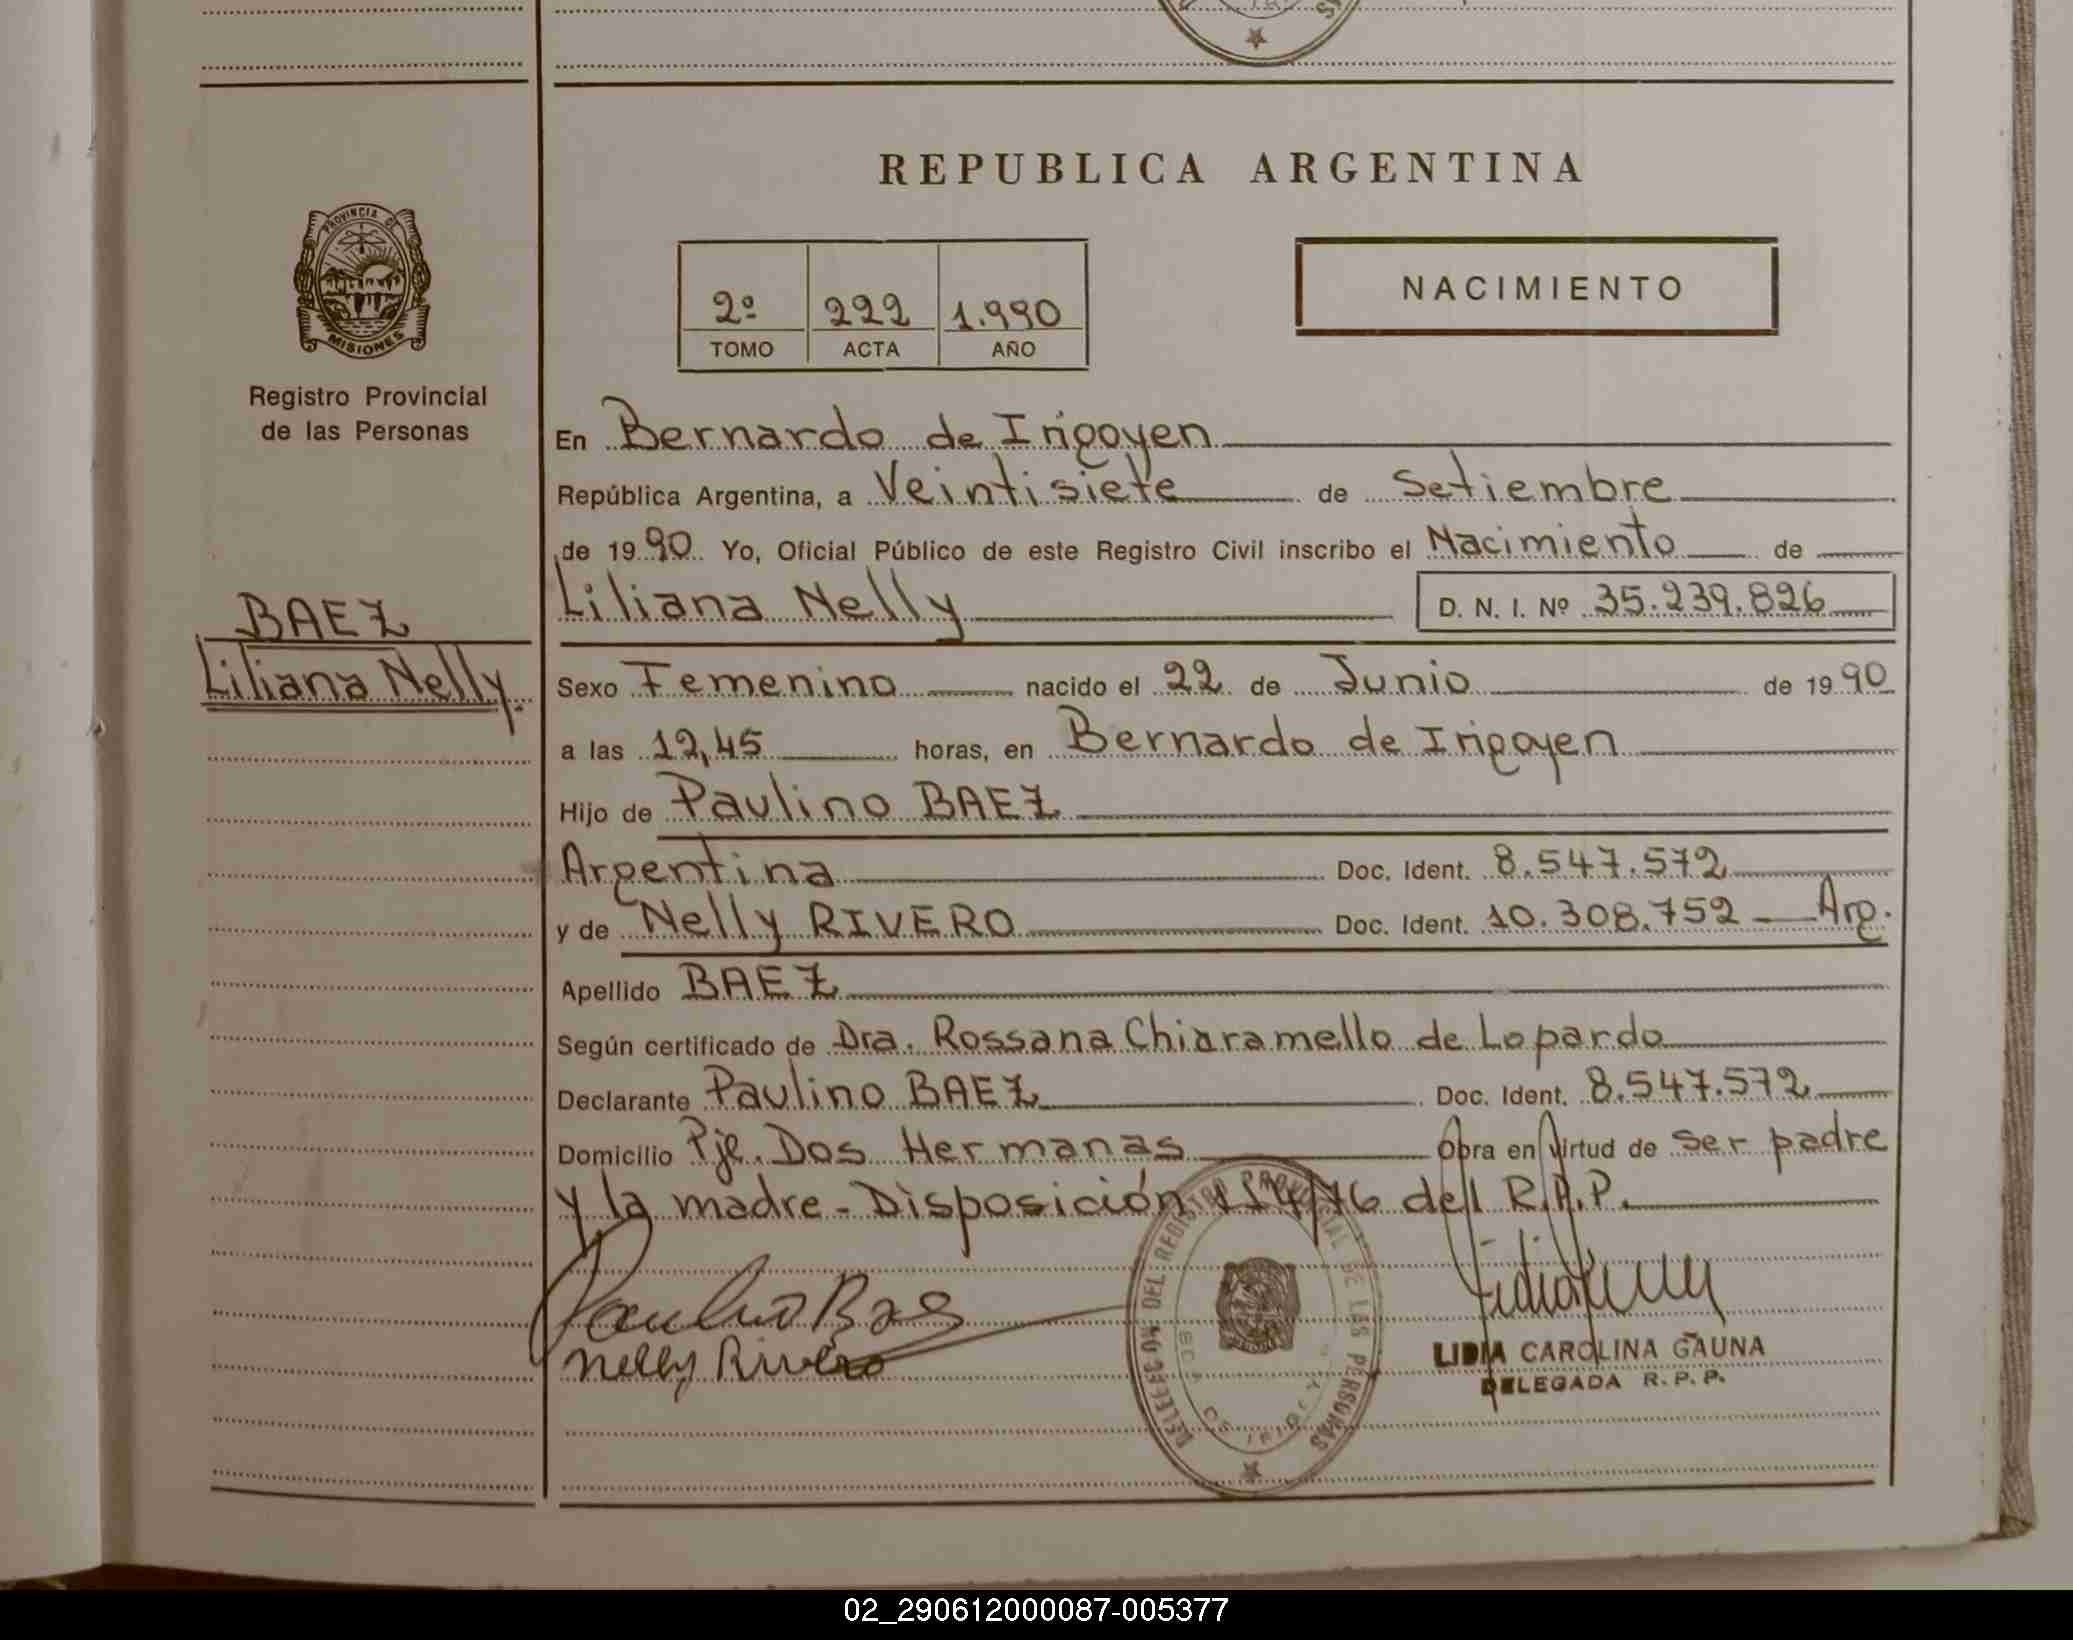 REPUBLICA ARGENTINA
PROVINCIA DE
MISIONES
Registro Provincial
de las Personas
BAEZ
Liliana Nelly
2º 222 1.990
TOMO ACTA AÑO
NACIMIENTO
En Bernardo de Irigoyen
República Argentina, a Veintisiete de Setiembre
de 1990 Yo, Oficial Público de este Registro Civil inscribo el Nacimiento de
Liliana Nelly D. N. I. Nº 35.239.826
Sexo Femenino nacido el 22 de Junio de 1990
a las 12,45 horas, en Bernardo de Irigoyen
Hijo de Paulino BAEZ
Argentina Doc. Ident. 8.547.572
y de Nelly RIVERO Doc. Ident. 10.308.752 - Arg.
Apellido BAEZ
Según certificado de Dra. Rossana Chiaramello de Lopardo
Declarante Paulino BAEZ Doc. Ident. 8.547.572
Domicilio Pje. Dos Hermanas Obra en virtud de ser padre
y la madre - Disposición 114/76 del R.P.P.
Paulino Baes
Nelly Rivero
DELEGACION DEL REGISTRO PROVINCIAL DE LAS PERSONAS
LIDIA CAROLINA GAUNA
DELEGADA R. P. P.
02_290612000087-005377